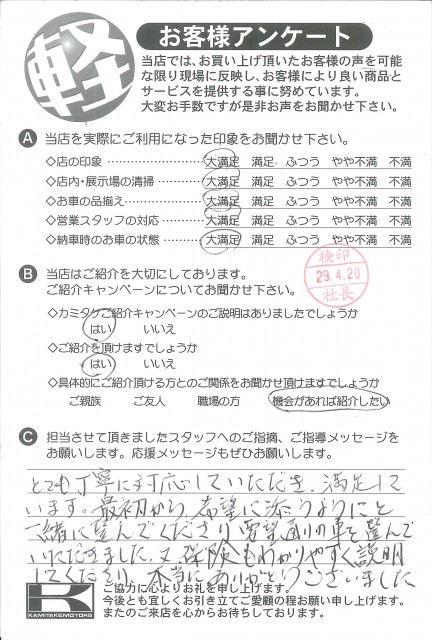 軽
お客様アンケート
当店では、お買い上げ頂いたお客様の声を可能
な限り現場に反映し、お客様により良い商品と
サービスを提供する事に努めています。
大変お手数ですが是非お声をお聞かせ下さい。
A 当店を実際にご利用になった印象をお聞かせ下さい。
◇店の印象 大満足 満足 ふつう やや不満 不満
◇店内・展示場の清掃 大満足 満足 ふつう やや不満 不満
◇お車の品揃え 大満足 満足 ふつう やや不満 不満
◇営業スタッフの対応 大満足 満足 ふつう やや不満 不満
◇納車時のお車の状態 大満足 満足 ふつう やや不満 不満
B 当店はご紹介を大切にしております。
ご紹介キャンペーンについてお聞かせ下さい。
検印
29.4.20
社長
◇カミタケご紹介キャンペーンのご説明はありましたでしょうか
はい いいえ
◇ご紹介を頂けますでしょうか
はい いいえ
◇具体的にご紹介頂ける方とのご関係をお聞かせ頂けますでしょうか
ご親族 ご友人 職場の方 機会があれば紹介したい
C 担当させて頂きましたスタッフへのご指摘、ご指導メッセージを
お願いします。応援メッセージもぜひお願いします。
とても丁寧に対応していただき、満足して
います。最初から、希望に添うようにと
一緒に選んでくださり、要望通りの車を選んで
いただきました。又、保険もわかりやすく説明
してくださり、本当にありがとうございました
K
KAMITAKEMOTORS
ご協力に心よりお礼を申し上げます。
今後とも宜しくお引き立てご愛顧の程お願い申し上げます。
またのご来店を心からお待ちしております。